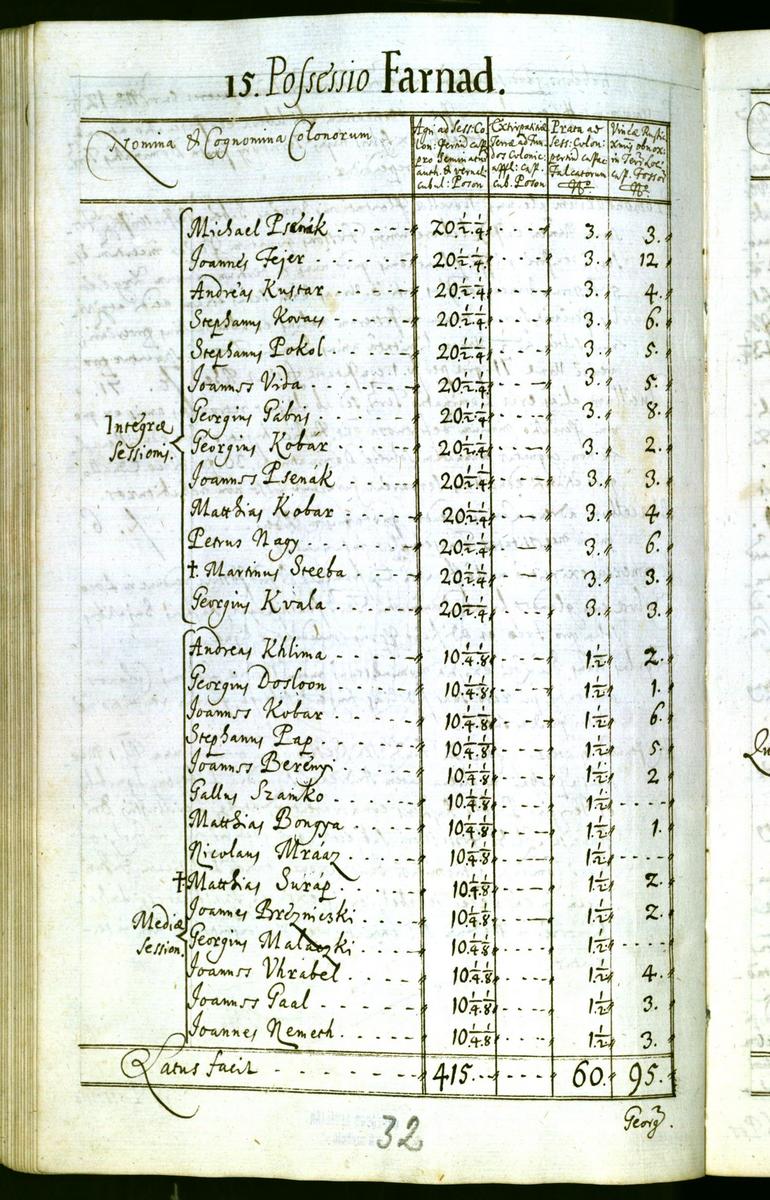 15. Possessio Farnad.
Nomina & Cognomina Colonorum
Agri ad Sess: Colon: Pertin: cusp: pro Geminatura auth: & vernal: cubul: Poson
Extirpatitiae Terrae ad Fundos Colonic: appli: cusp: cub: Poson
Prata ad Sess: Colon: pertin: cuspae Falcatorum No
Vineae Rustic: obnox: in Terr: Loci cusp: Fossor: No
Integrae Sessionis.
Michael Psenák 20 1/2 1/4 3. 3.
Joannes Fejer 20 1/2 1/4 3. 12
Andreas Kustar 20 1/2 1/4 3. 4.
Stephanus Kovacs 20 1/2 1/4 3. 6.
Stephanus Pokol 20 1/2 1/4 3. 5.
Joannes Vida 20 1/2 1/4 3. 5.
Georgius Gabris 20 1/2 1/4 3. 8.
Georgius Kobar 20 1/2 1/4 3. 2.
Joannes Psenák 20 1/2 1/4 3. 3.
Matthias Kobar 20 1/2 1/4 3. 4
Petrus Nagy 20 1/2 1/4 3. 6.
†. Martinus Steeba 20 1/2 1/4 3. 3.
Georgius Kvala 20 1/2 1/4 3. 3.
Mediae Session:
Andreas Khlima 10 1/4 1/8 1 1/2 2.
Georgius Dosloon 10 1/4 1/8 1 1/2 1.
Joannes Kobar 10 1/4 1/8 1 1/2 6.
Stephanus Pap 10 1/4 1/8 1 1/2 5.
Joannes Berényi 10 1/4 1/8 1 1/2 2
Gallus Szamko 10 1/4 1/8 1 1/2
Matthias Bongya 10 1/4 1/8 1 1/2 1.
Nicolaus Mráaz 10 1/4 1/8 1 1/2
† Matthias Suráp 10 1/4 1/8 1 1/2 2.
Joannes Brézniczki 10 1/4 1/8 1 1/2 2.
Georgius Malaczki 10 1/4 1/8 1 1/2
Joannes Vhrabel 10 1/4 1/8 1 1/2 4.
Joannes Gaal 10 1/4 1/8 1 1/2 3.
Joannes Nemeth 10 1/4 1/8 1 1/2 3.
Latus facit 415. 60. 95.
Georg.
32